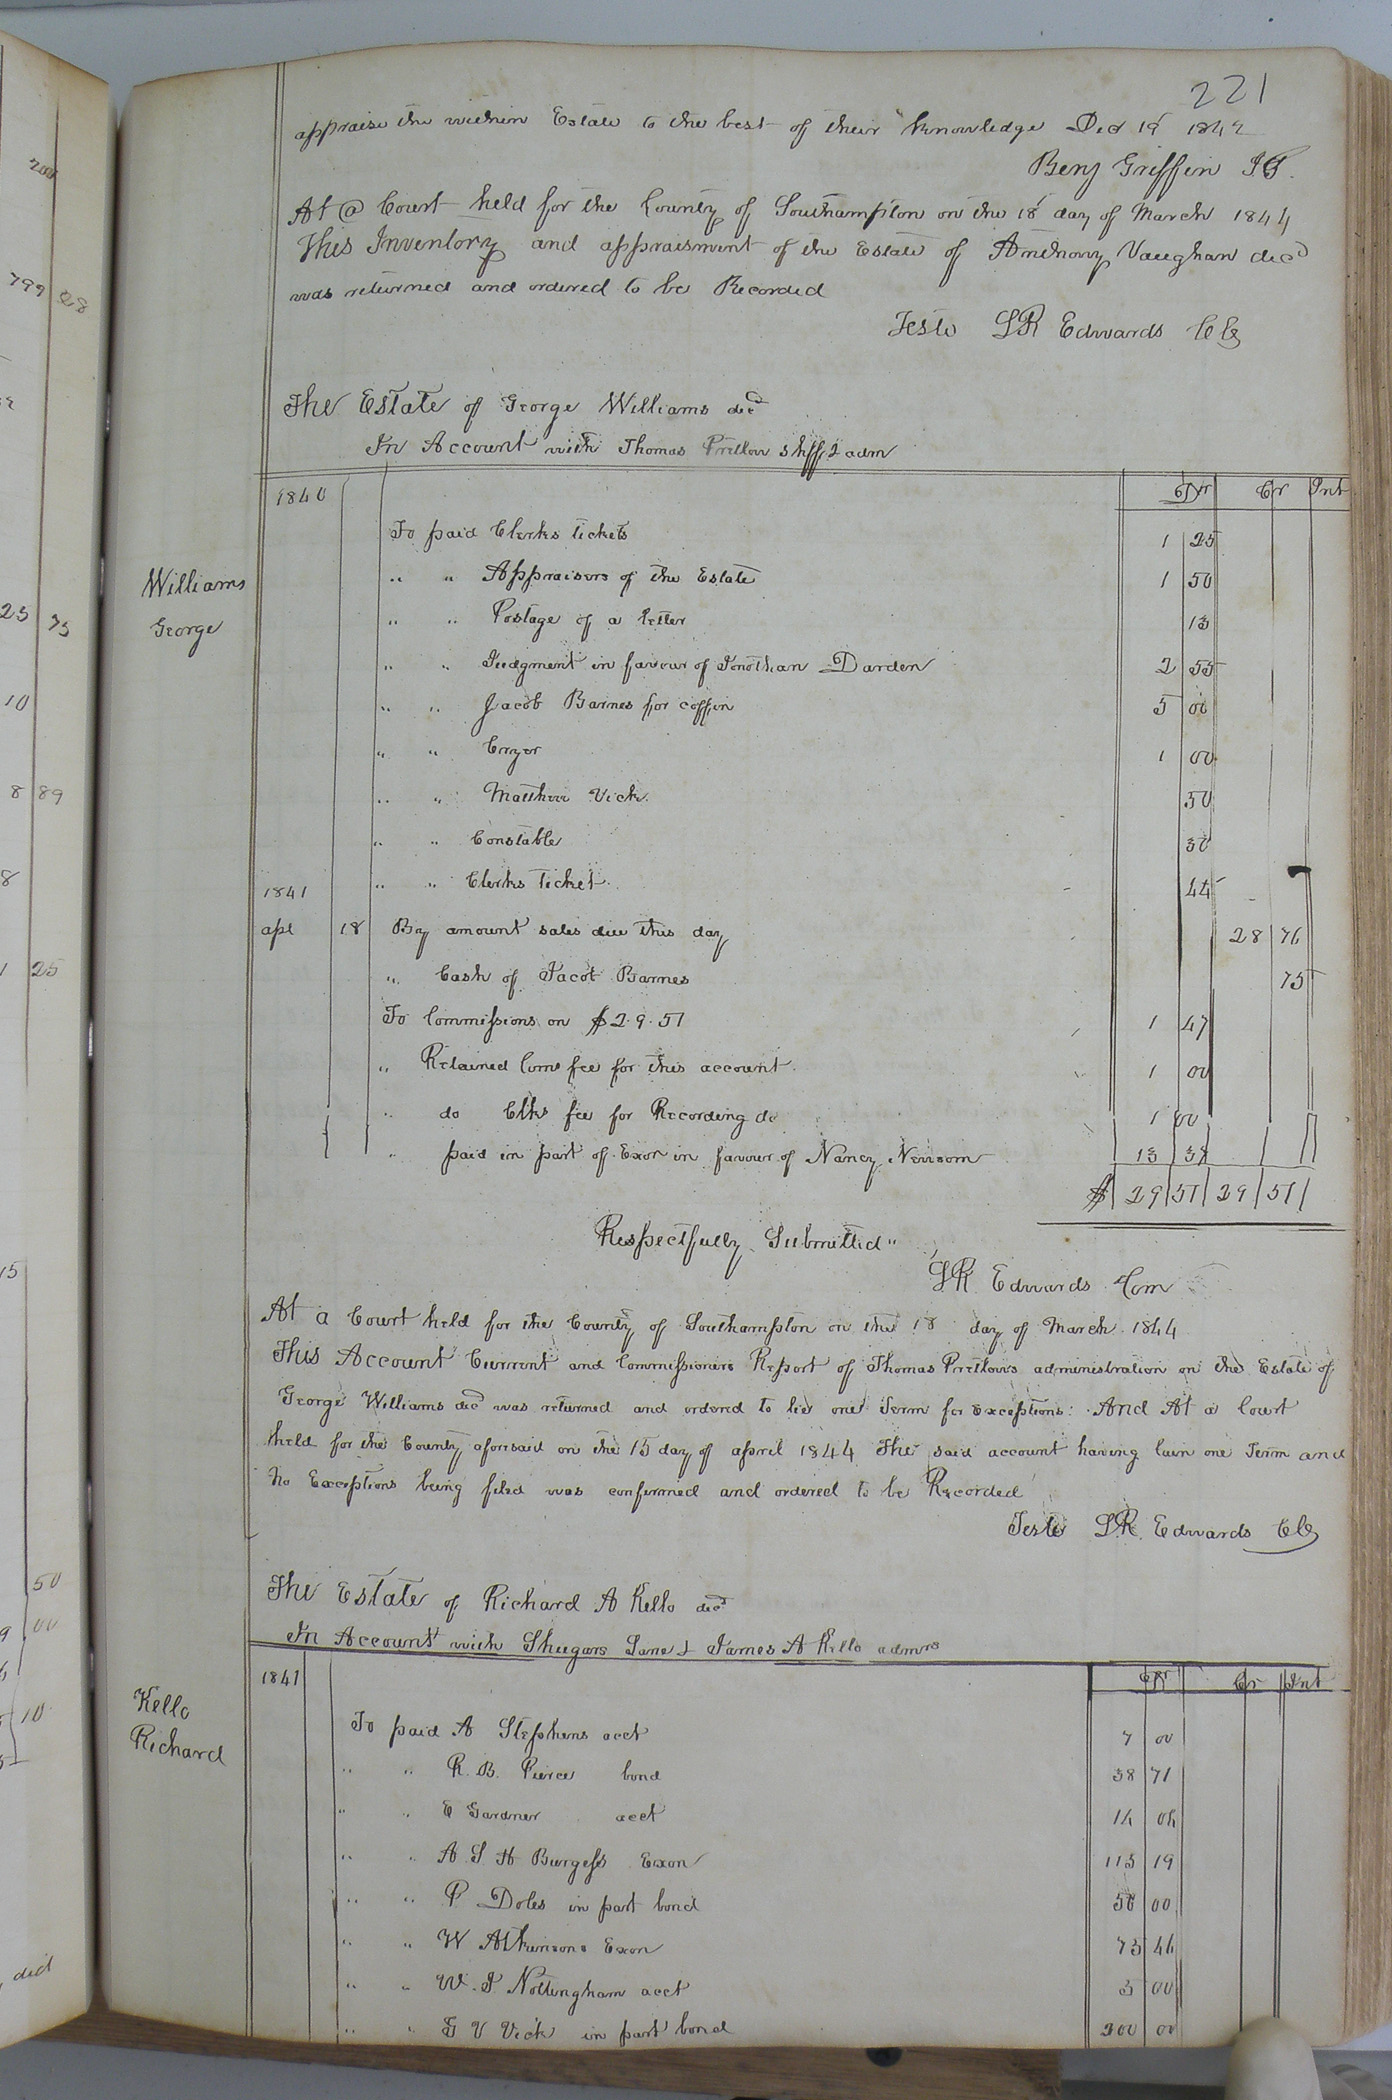 221
appraise the within Estate to the best of their knowledge Decr 19 1842
Benj Griffin JP.
At @ Court held for the County of Southampton on the 18 day of March 1844
This Inventory and appraisment of the Estate of Anthony Vaughan decd
was returned and ordered to be Recorded
Teste LR Edwards ClC
The Estate of George Williams decd
In Account with Thomas Pretlow shff & adm
1840 Dr Cr Int
To paid Clerks tickets 1 25
Williams
George
" " Appraisers of the Estate 1 50
" " Postage of a letter 13
" " Judgment in favour of Jonothan Darden 2 55
" " Jacob Barnes for coffin 5 00
" " Cryer 1 00
" " Matthew Vick 50
" " Constable 30
1841 " " Clerks ticket 44
apl 18 By amount sales due this day 28 76
" Cash of Jacob Barnes 75
To Commissions on $2.9.51 1 47
" Retained Coms fee for this account 1 00
" do Clks fee for Recording do 1 00
" paid in part of Exon in favour of Nancy Newsom 13 37
$ 29 51 29 51
Respectfully Submitted "
LR Edwards Com
At a Court held for the County of Southampton on the 18 day of March 1844
This Account Current and Commissioners Report of Thomas Pretlows administration on the Estate of
George Williams decd was returned and ordered to lie one Term for Exceptions: And At a Court
held for the County aforesaid on the 15 day of april 1844 The said account having lain one Term and
No Exceptions being filed was confirmed and ordered to be Recorded
Teste LR Edwards ClC
The Estate of Richard A Kello decd
In Account with Shugars Lane & James A Kello admrs
1841 Dr Cr Int
Kello
Richard
To paid A Stephens acct 7 00
" " R. B. Pierce bond 38 71
" " E Gardner acct 14 04
" " A S H Burgess Exon 113 19
" " P Doles in part bond 50 00
" " W Atkinsons Exon 73 46
" " W. J Nottingham acct 3 00
" " G V Vick in part bond 300 00
200
799 28
23 75
10
8 89
8
1 25
15
50
00
10
did